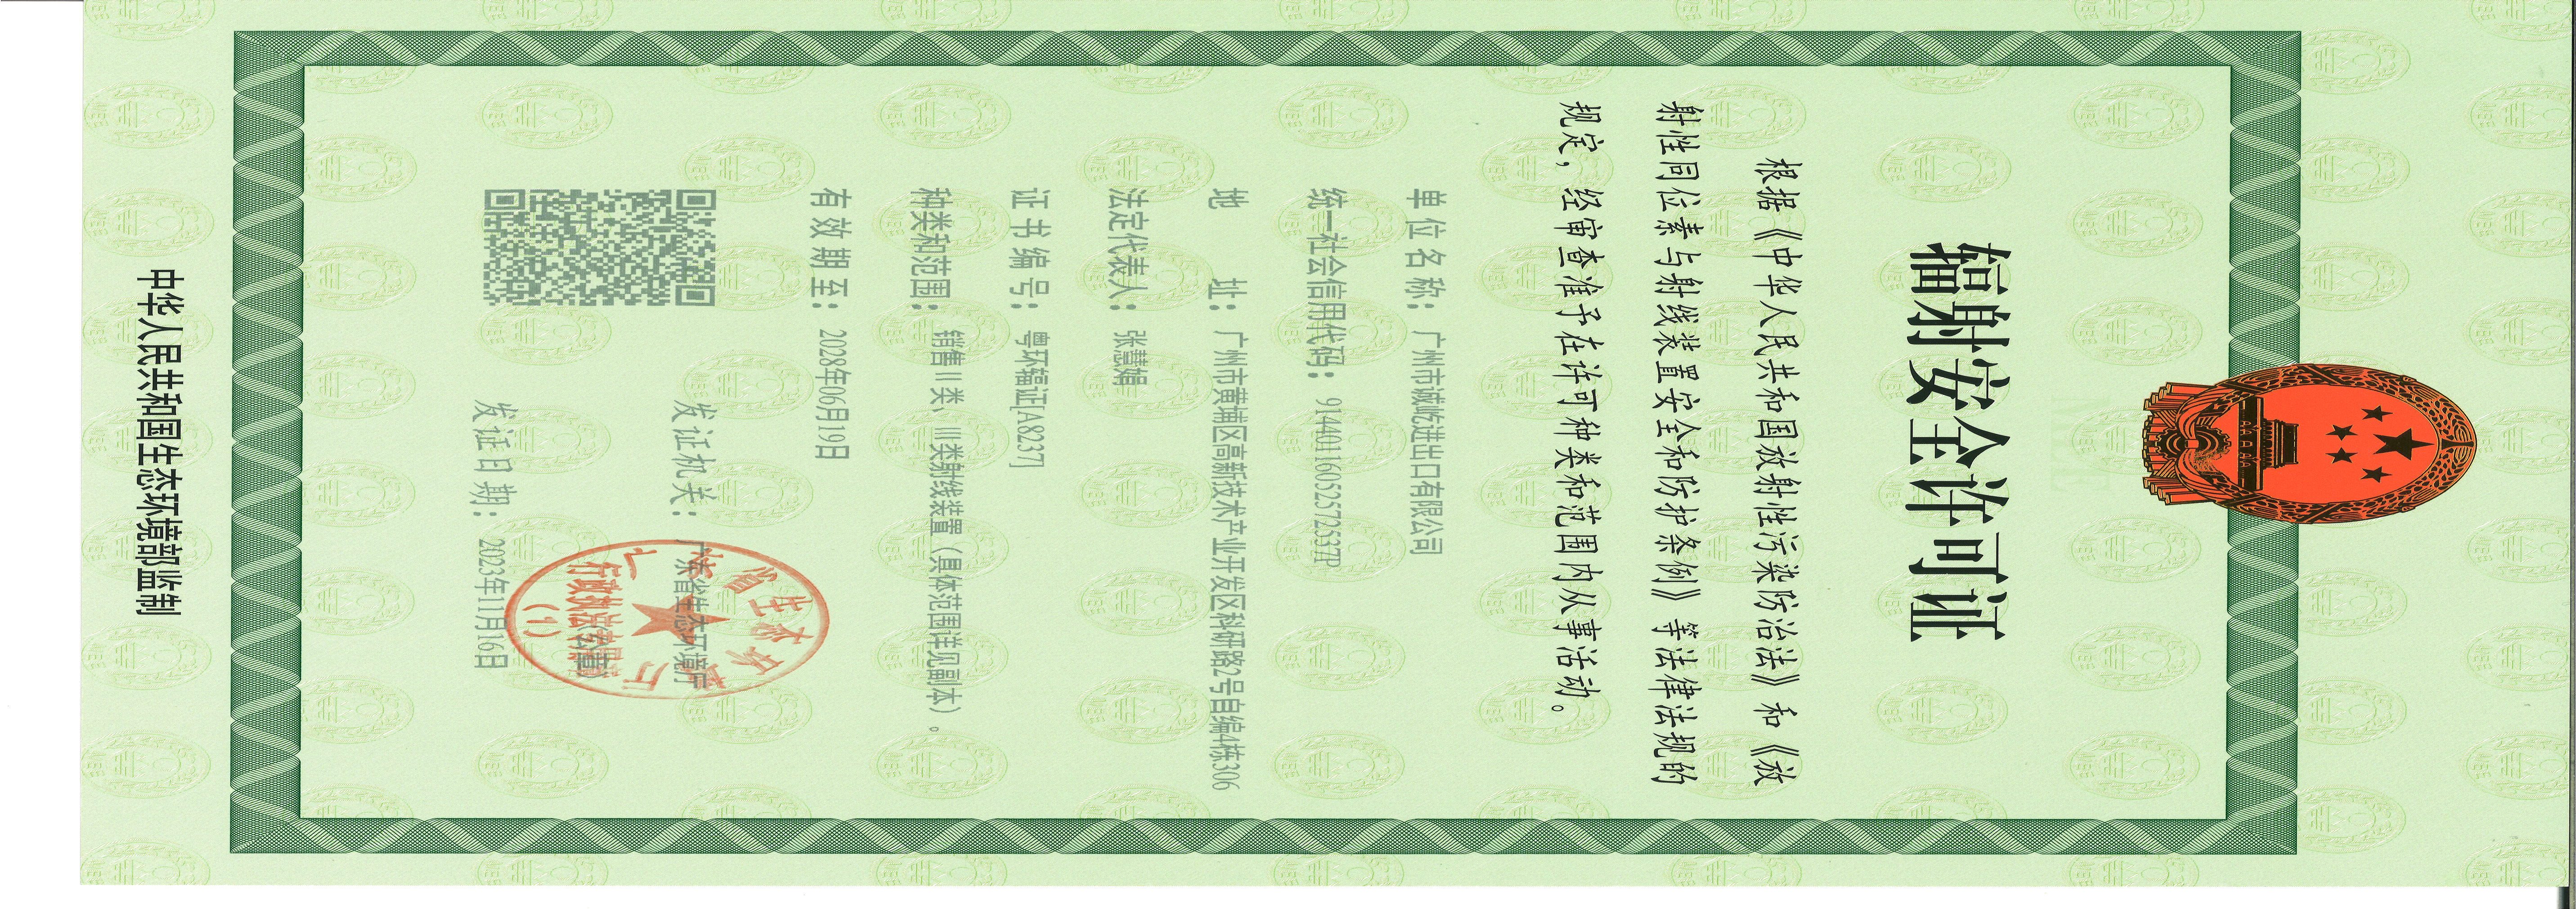 辐射安全许可证
根据《中华人民共和国放射性污染防治法》和《放
射性同位素与射线装置安全和防护条例》等法律法规的
规定，经审查准予在许可种类和范围内从事活动。
单位名称：广州市诚屹进出口有限公司
统一社会信用代码：91440116052572537P
地址：广州市黄埔区高新技术产业开发区科研路2号自编4栋306
法定代表人：张慧娟
证书编号：粤环辐证[A8237]
种类和范围：销售Ⅱ类、Ⅲ类射线装置（具体范围详见副本）。
有效期至：2028年06月19日
发证机关：广东省生态环境厅
广东省生态环境厅
行政执法专用章
(1)
发证日期：2023年11月16日
中华人民共和国生态环境部监制